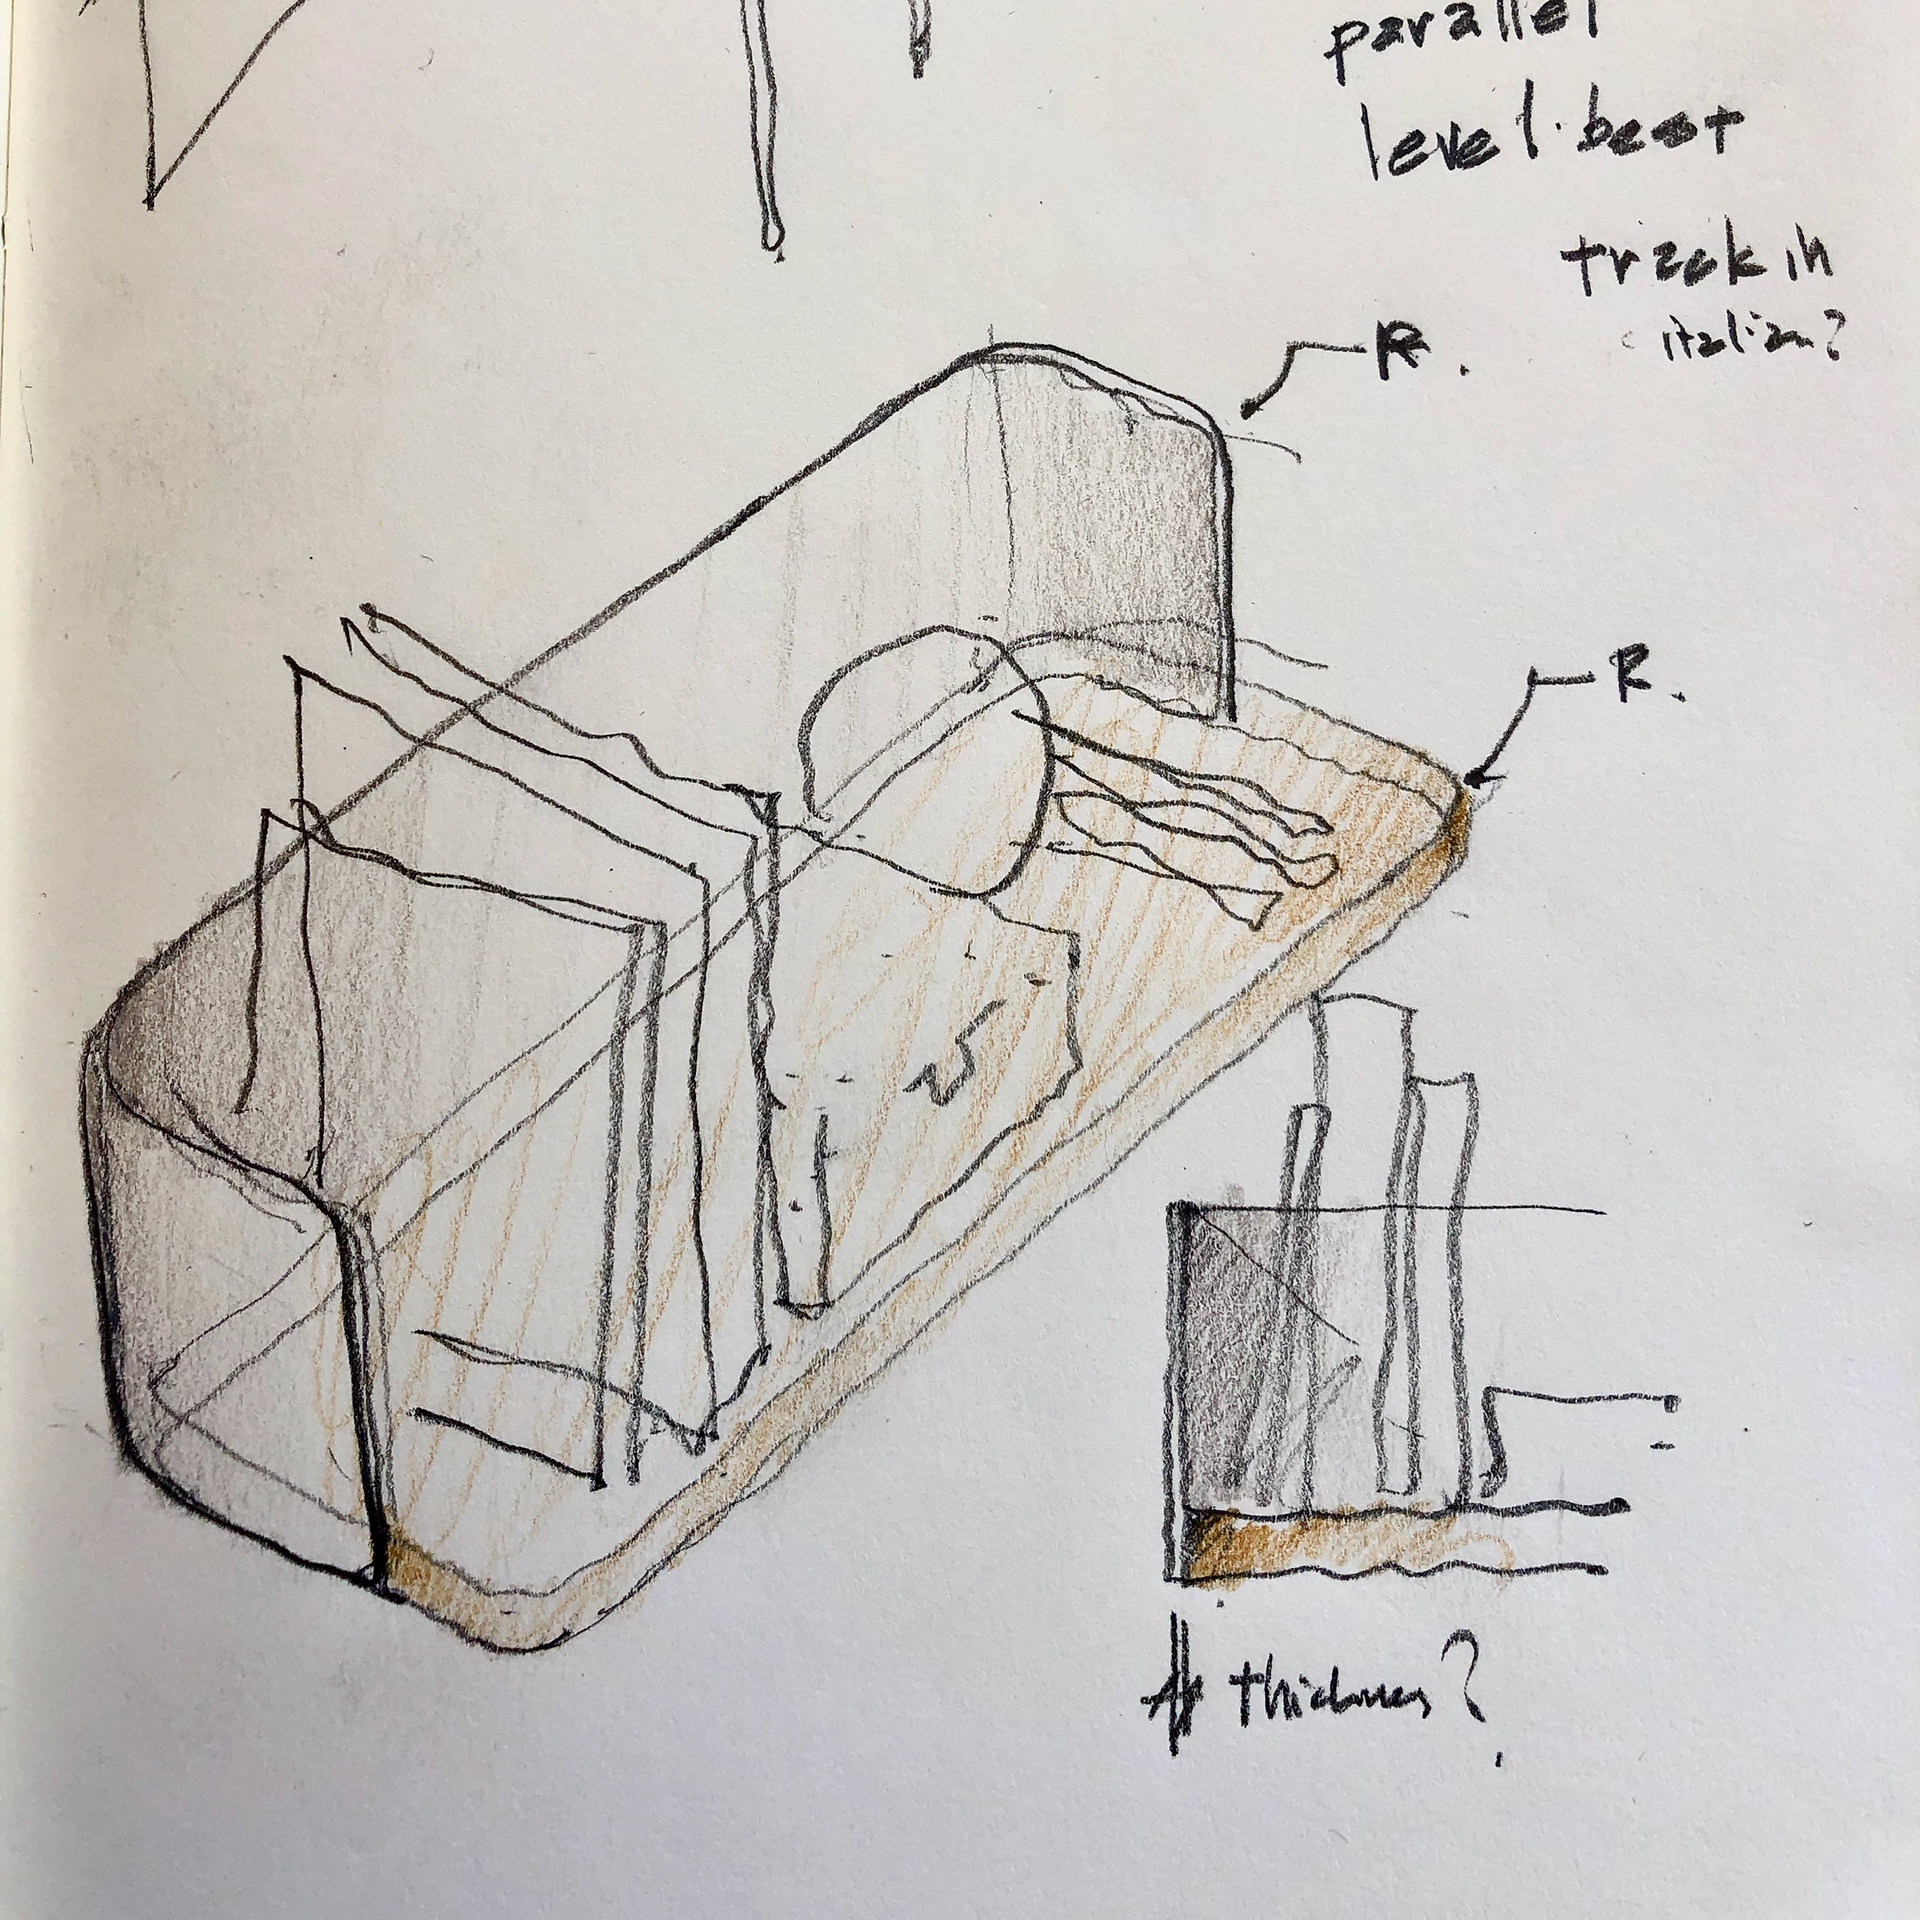 parallel
level·best
track in
italian?
R.
R.
thickness?